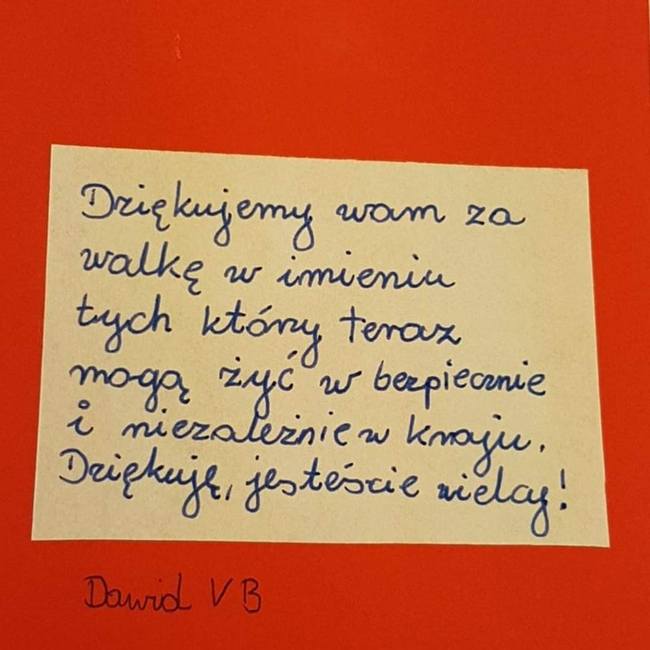 Dziękujemy wam za
walkę w imieniu
tych którzy teraz
mogą żyć w bezpiecznie
i niezależnie w kraju.
Dziękuję, jesteście wielcy!
Dawid VB